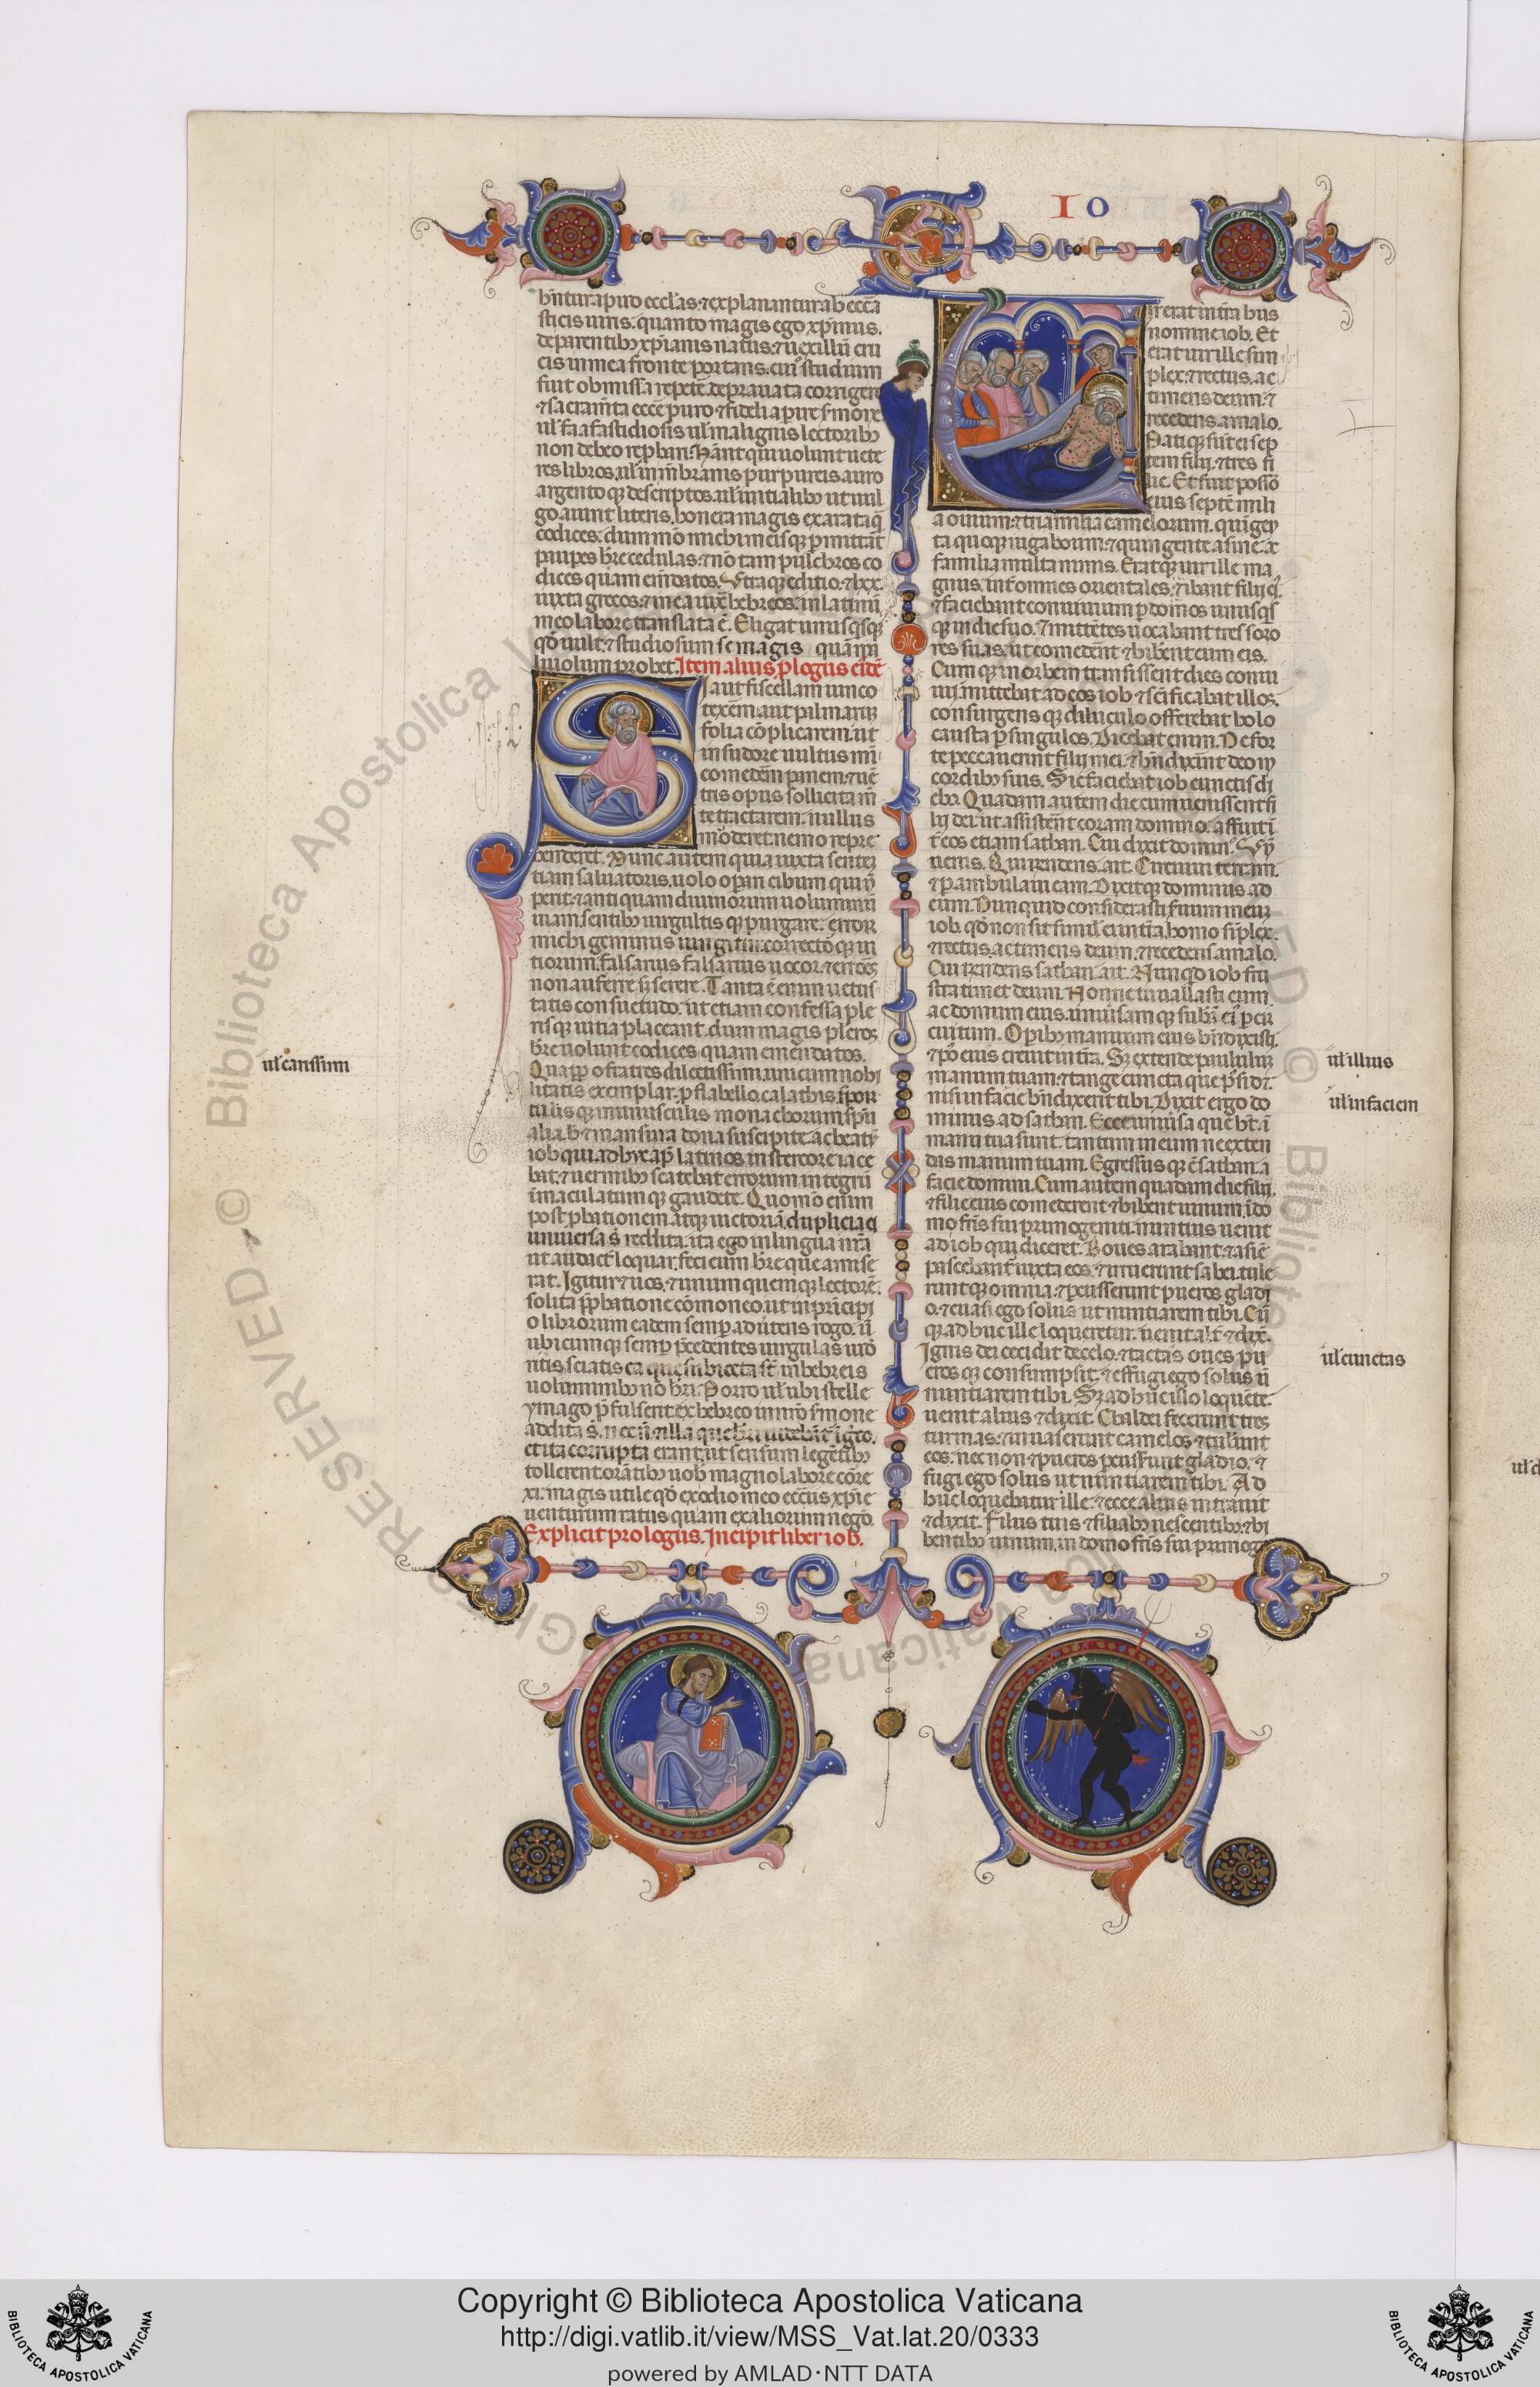 I O
bñtur apud ecclĩas. ⁊ explanantur ab eccã
sticis uiris. quanto magis ego xp̃ianus.
de parentibꝫ xp̃ianis natus. ⁊ uexillũ cru
cis in mea fronte portans. cuiꝰ studium
fuit obmissa repete. deprauata corrigere
⁊ sacram̃ta ecc̃e puro ⁊ fideli apire s̃mone
ul̃ fastidiosis ul̃ malignis lectoribꝫ
non debeo rep̱bari. Hãnt qui uolunt uete
res libros. ul̃ in m̃branis purpureis auro
argento qꝫ descriptos. ul̃ initialibꝫ ut uul
go aiunt literis. honera magis exarata q̃
codices. dum mõ michi meisqꝫ p̱mittãt
paup̱es h̃re cedulas. ⁊ nõ tam pulchros co
dices quam em̃datos. Vtraqꝫ editio. ⁊ lxx.
iuxta grecos. ⁊ mea iux̃ hebreos. in latinũ
meo labore translata ẽ. Eligat unusq̇sqꝫ
qđ uult. ⁊ studiosum se magis quam
liuolum probet. Item alius p̱logus eiꝰdẽ
S I aut fiscellam iunco
texẽm. aut palmarꝝ
folia cõplicarem. ut
in sudore uultus mi
comedẽm panem. ⁊ uẽ
tris opus sollicita m̃
te tractarem. nullus
morderet. nemo repre
henderet. Nunc autem quia iuxta senten
tiam saluatoris. uolo op̱ari cibum qui ñ
perit. ⁊ antiquam diuinorum uoluminũ
uiam. sentibꝫ uirgultis qꝫ purgare. error
michi geminus infigitur. correctorqꝫ ui
tiorum. falsarius uocor. ⁊ errores
non auferre sꝫ serere. Tanta ẽ enim uetus
tatis consuetudo. ut etiam confessa ple
risqꝫ uitia placeant. dum magis pulcros
h̃re uolunt codices quam emendatos.
Quap̱p̱ o fratres dilectissimi. unicum nobi
litatis exemplar. p̱ flabello. calathis. spor
tulisqꝫ munusculis monachorum. sp̃ũ
alia. h̃ ⁊ mansura dona suscipite. ac beatũ
iob qui adhuc ap̱ latinos in stercore iace
bat. ⁊ uermibꝫ scatebat errorum. integrũ
ĩmaculatumqꝫ gaudete. Quomõ enim
post p̱bationem atqꝫ uictoriã. duplicia ei
uniuersa s̃ reddita. ita ego in lingua nr̃a
ut audact̃ loquar. feci eum h̃re que amise
rat. Igitur ⁊ uos. ⁊ unum quemqꝫ lectorẽ.
solita p̱fatione cõmoneo. ut in principi
o librorum eadem semp̱ adnitens rogo. ũ
ubicumqꝫ semp̱ p̱cedentes uirgulas uide
ritis. sciatis ea que subiecta st̃ in hebreis
uoluminibꝫ nõ h̃ri. Porro ul̃ ubi stelle
ymago p̱fulserit. ex hebreo in nr̃o s̃mone
addita s̃. necñ ⁊ illa que h̃ri uidebãt̃
⁊ ita corrupta erant. ut sensum legẽtibꝫ
tollerent. orãtibꝫ uob̃ magno labore corre
xi. magis utile qđ ex otio meo ecc̃iis xp̃ie
uenturum ratus. quam ex aliorum nego.
Explicit prologus. Incipit liber iob.
V ir erat in tr̃a hus
nomine iob. Et
erat uir ille sim
plex. ⁊ rectus. ac
timens deum. ⁊
recedens a malo.
Natiqꝫ sũt ei sep
tem filii. ⁊ tres fi
lie. Et fuit possẽo
eius septẽ mili
a ouium. ⁊ tria milia camelorum. quingẽ
ta quoqꝫ iuga boum. ⁊ quingente asine. ac
familia multa nimis. Eratqꝫ uir ille ma
gnus. int̃ omnes orientales. ⁊ ibant filii eꝰ.
⁊ faciebant conuiuium p̱ domos unusq̇s
qꝫ in die suo. ⁊ mittẽtes uocabant tres soro
res suas. ut comedẽnt ⁊ bibẽnt cum eis.
Cumqꝫ in orbem transissent dies conui
uii. mittebat ad eos iob ⁊ sc̃ificabat illos.
consurgensqꝫ diluculo offerebat holo
causta p̱ singulos. Dicebat enim. Ne for
te peccauerint filii mei. ⁊ bñdixerint deo in
cordibꝫ suis. Sic faciebat iob cunctis di
ebꝫ. Quadam autem die cum uenissent fi
lii dei. ut assistẽnt coram domino. affuit ĩ
t̃ eos etiam sathan. Cui dixit dominꝰ. Vñ
uenis. Qui rñdens. ait. Circuiui terram.
⁊ p̱ambulaui eam. Dixitqꝫ dominus ad
eum. Nunquid considerasti s̃uum meum
iob. qđ non sit similꝰ ei in tr̃a. homo simplex.
⁊ rectus. ac timens deum. ⁊ recedens a malo.
Cui rñdens sathan ait. Nunqđ iob frus
tra timet deum. Nonne tu uallasti eum
ac domum eius. uniũsamqꝫ subãm eꝰ p̱ cir
cuitum. Op̱ibꝫ manuum eius bñdixisti.
⁊ p̱ossessio eius creuit in tr̃a. Sꝫ extende paululũ
manum tuam. ⁊ tange cuncta que possidet.
nisi in facie bñdixerit tibi. Dixit ergo do
minus ad sathan. Ecce uniũsa que h̃t. ĩ
manu tua sunt. tantum in eum ne exten
das manum tuam. Egressusqꝫ ẽ sathan. a
facie domini. Cum autem quadam die filii.
⁊ filie eius comederent ⁊ bibẽnt uinum. ĩ do
mo fr̃is sui primogeniti. nuntius uenit
ad iob qui diceret. Boues arabant. ⁊ asine
pascebant̃ iuxta eos. ⁊ irruerunt sabei. tule
runtqꝫ omnia. ⁊ p̱cusserunt pueros gladi
o. ⁊ euasi ego solus ut nuntiarem tibi. Cũ
qꝫ adhuc ille loqueretur. uenit alt̃ ⁊ dix̃.
Ignis dei cecidit de celo. ⁊ tactas oues pu
erosqꝫ consumpsit. ⁊ effugi ego solus ut
nuntiarem tibi. Sꝫ adhuc illo loquẽte
uenit alius ⁊ dixit. Chaldei fecerunt tres
turmas. ⁊ inuaserunt camelos ⁊ tulerunt
eos. nec non ⁊ pueros p̱cusserunt gladio. ⁊
fugi ego solus ut nuntiarem tibi. Ad
huc loquebatur ille. ⁊ ecce alius intrauit
⁊ dixit. Filiis tuis ⁊ filiabꝫ uescentibꝫ. ⁊ bi
bentibꝫ uinum. in domo fr̃is sui primoge
ul̃ carissimi
ul̃ illius
ul̃ in faciem
ul̃ cunctas
© Biblioteca Apostolica Vaticana
Copyright © Biblioteca Apostolica Vaticana
http://digi.vatlib.it/view/MSS_Vat.lat.20/0333
powered by AMLAD·NTT DATA
BIBLIOTECA APOSTOLICA VATICANA
BIBLIOTECA APOSTOLICA VATICANA